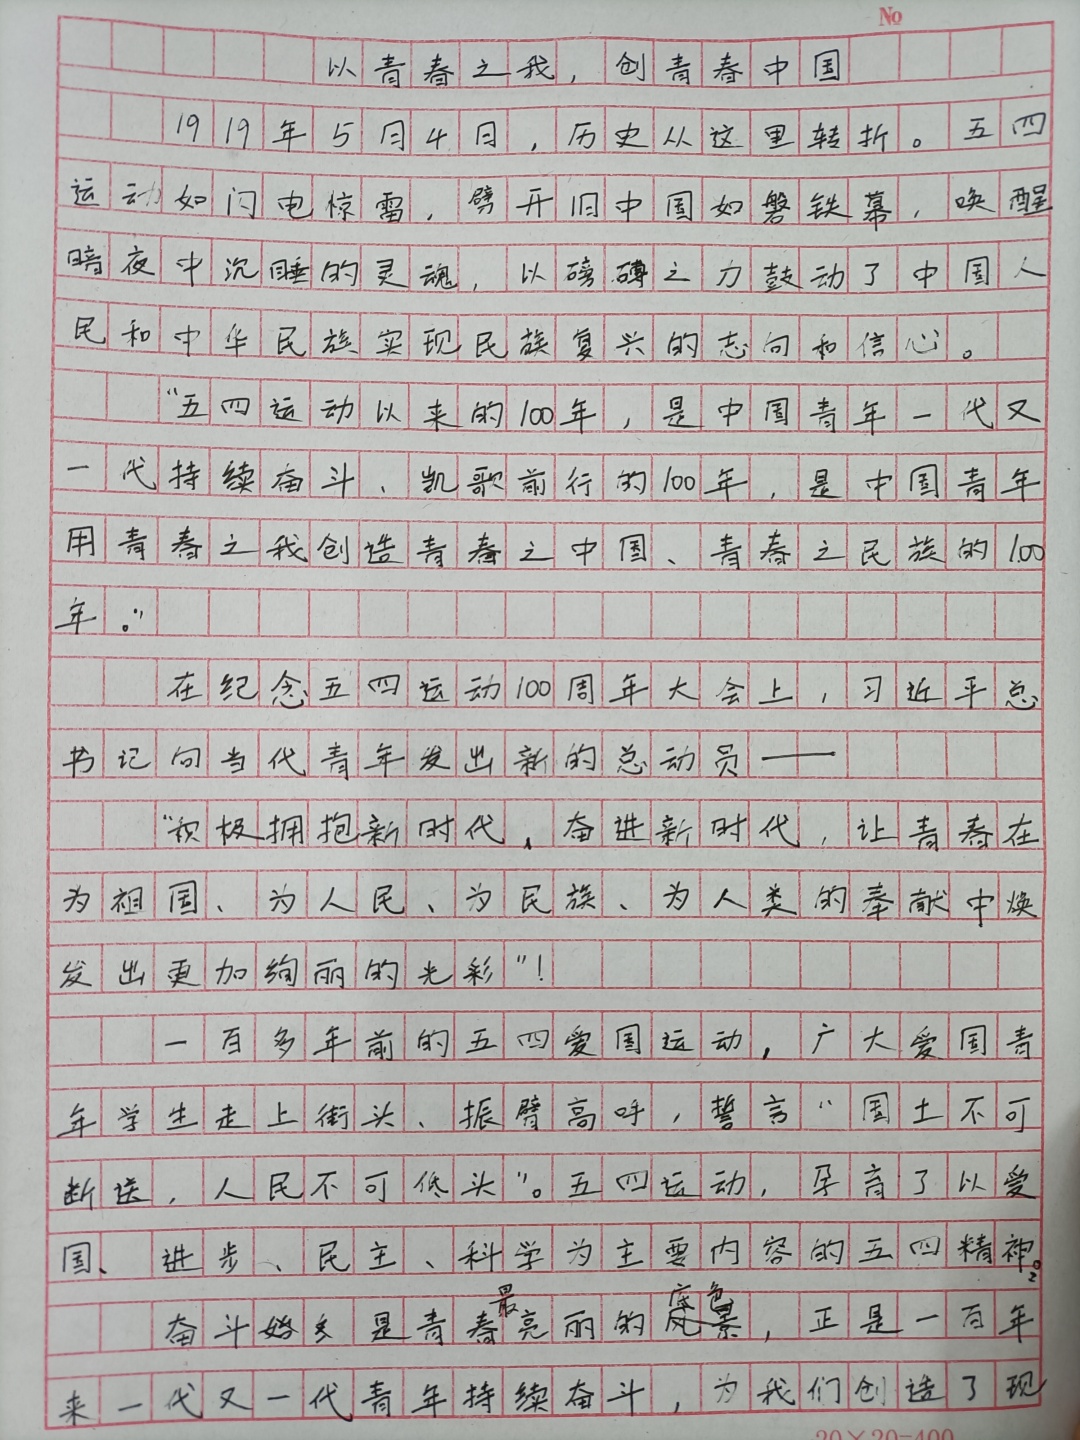 No
以青春之我，创青春中国
1919年5月4日，历史从这里转折。五四
运动如闪电惊雷，劈开旧中国如磐铁幕，唤醒
暗夜中沉睡的灵魂，以磅礴之力鼓动了中国人
民和中华民族实现民族复兴的志向和信心。
“五四运动以来的100年，是中国青年一代又
一代持续奋斗、凯歌前行的100年，是中国青年
用青春之我创造青春之中国、青春之民族的100
年。”
在纪念五四运动100周年大会上，习近平总
书记向当代青年发出新的总动员——
“积极拥抱新时代、奋进新时代，让青春在
为祖国、为人民、为民族、为人类的奉献中焕
发出更加绚丽的光彩”！
一百多年前的五四爱国运动，广大爱国青
年学生走上街头、振臂高呼，誓言“国土不可
断送，人民不可低头”。五四运动，孕育了以爱
国、进步、民主、科学为主要内容的五四精神。
最 底色
奋斗始乡是青春亮丽的风景，正是一百年
来一代又一代青年持续奋斗，为我们创造了现
20×20=400